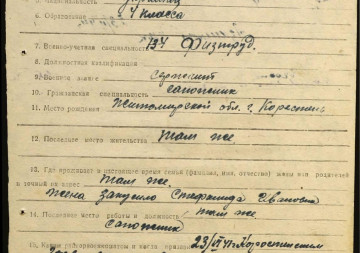 6. Образование 4 класса
7. Военно-учетная специальность 134 Физрук.
8. Должностная квалификация
9. Воинское звание Сержант
10. Гражданская специальность сапожник
11. Место рождения Житомирской обл. г. Коростень
12. Последнее место жительства Там же
13. Где проживает в настоящее время семья (фамилия, имя, отчество) жены или родителей
и точный их адрес Там же
жена Стефанида Ивановна
14. Последнее место работы и должность там же
Сапожник
15. Каким райвоенкоматом и когда призван 23/VI 41 Коростенским